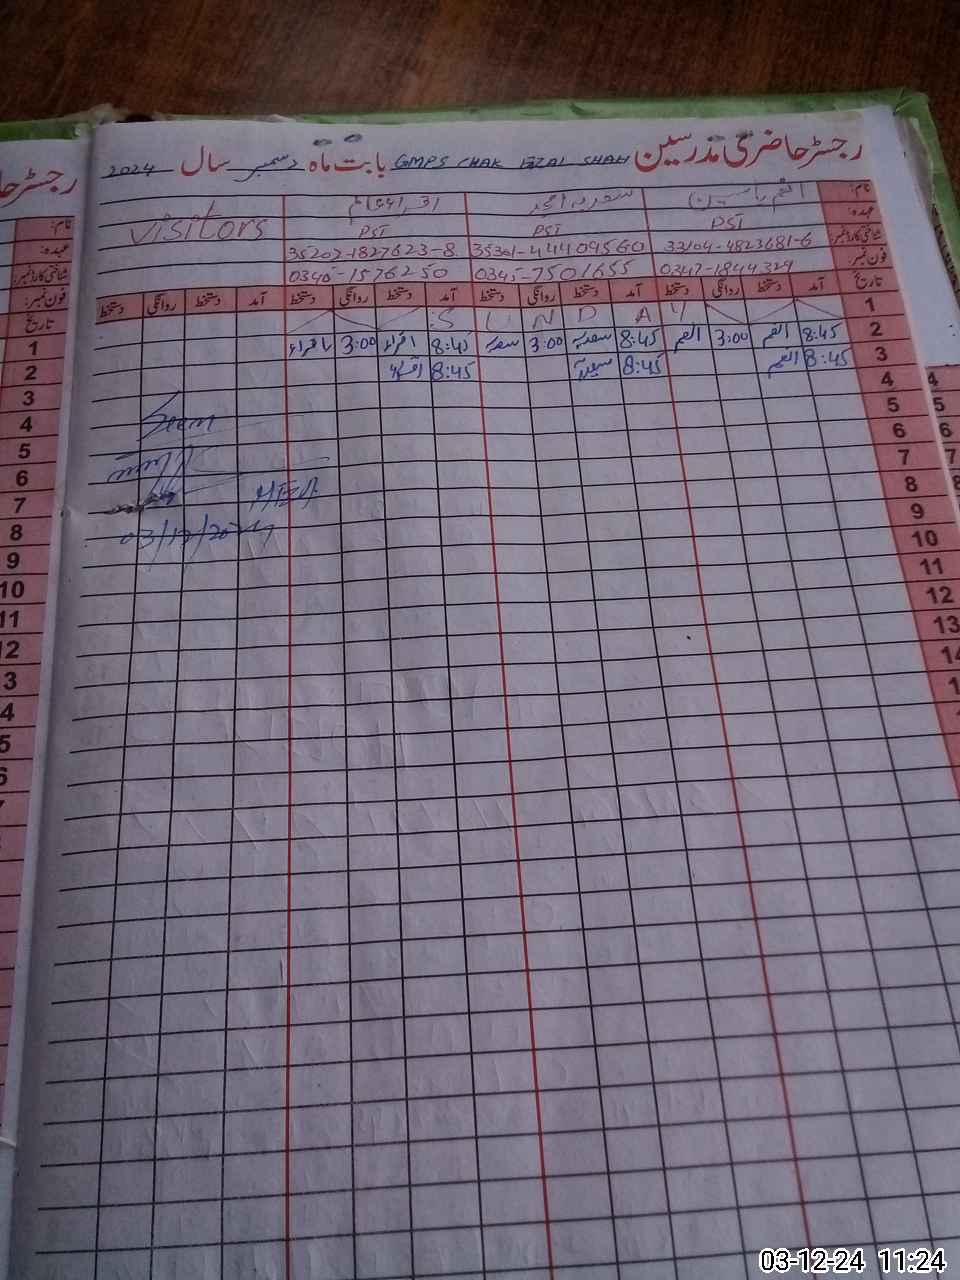 رجسٹر حاضری مدرسین GMPS CHAK FAZAL SHAH بابت ماہ دسمبر سال 2024
نام:
عہدہ: PST PST PST visitors
شناختی کارڈ نمبر: 33104-4823681-6 35301-4440956-0 35202-1827623-8
فون نمبر: 0347-1844329 0345-7501655 0346-1576250
تاریخ آمد دستخط روانگی دستخط آمد دستخط روانگی دستخط آمد دستخط روانگی دستخط آمد دستخط روانگی دستخط
1 SUNDAY
2 8:45 انعم 3:00 انعم 8:45 سعدیہ 3:00 سعدیہ 8:45 اقراء 3:00 اقراء
3 8:45 انعم 8:45 سعدیہ 8:45 اقراء
4
5
6
7
8
9
10
11
12
13
14
03/12/2024
رجسٹر حا
نام:
عہدہ:
شناختی کارڈ نمبر:
فون نمبر:
تاریخ
1
2
3
4
5
6
7
8
9
10
11
12
3
4
5
6
03-12-24 11:24